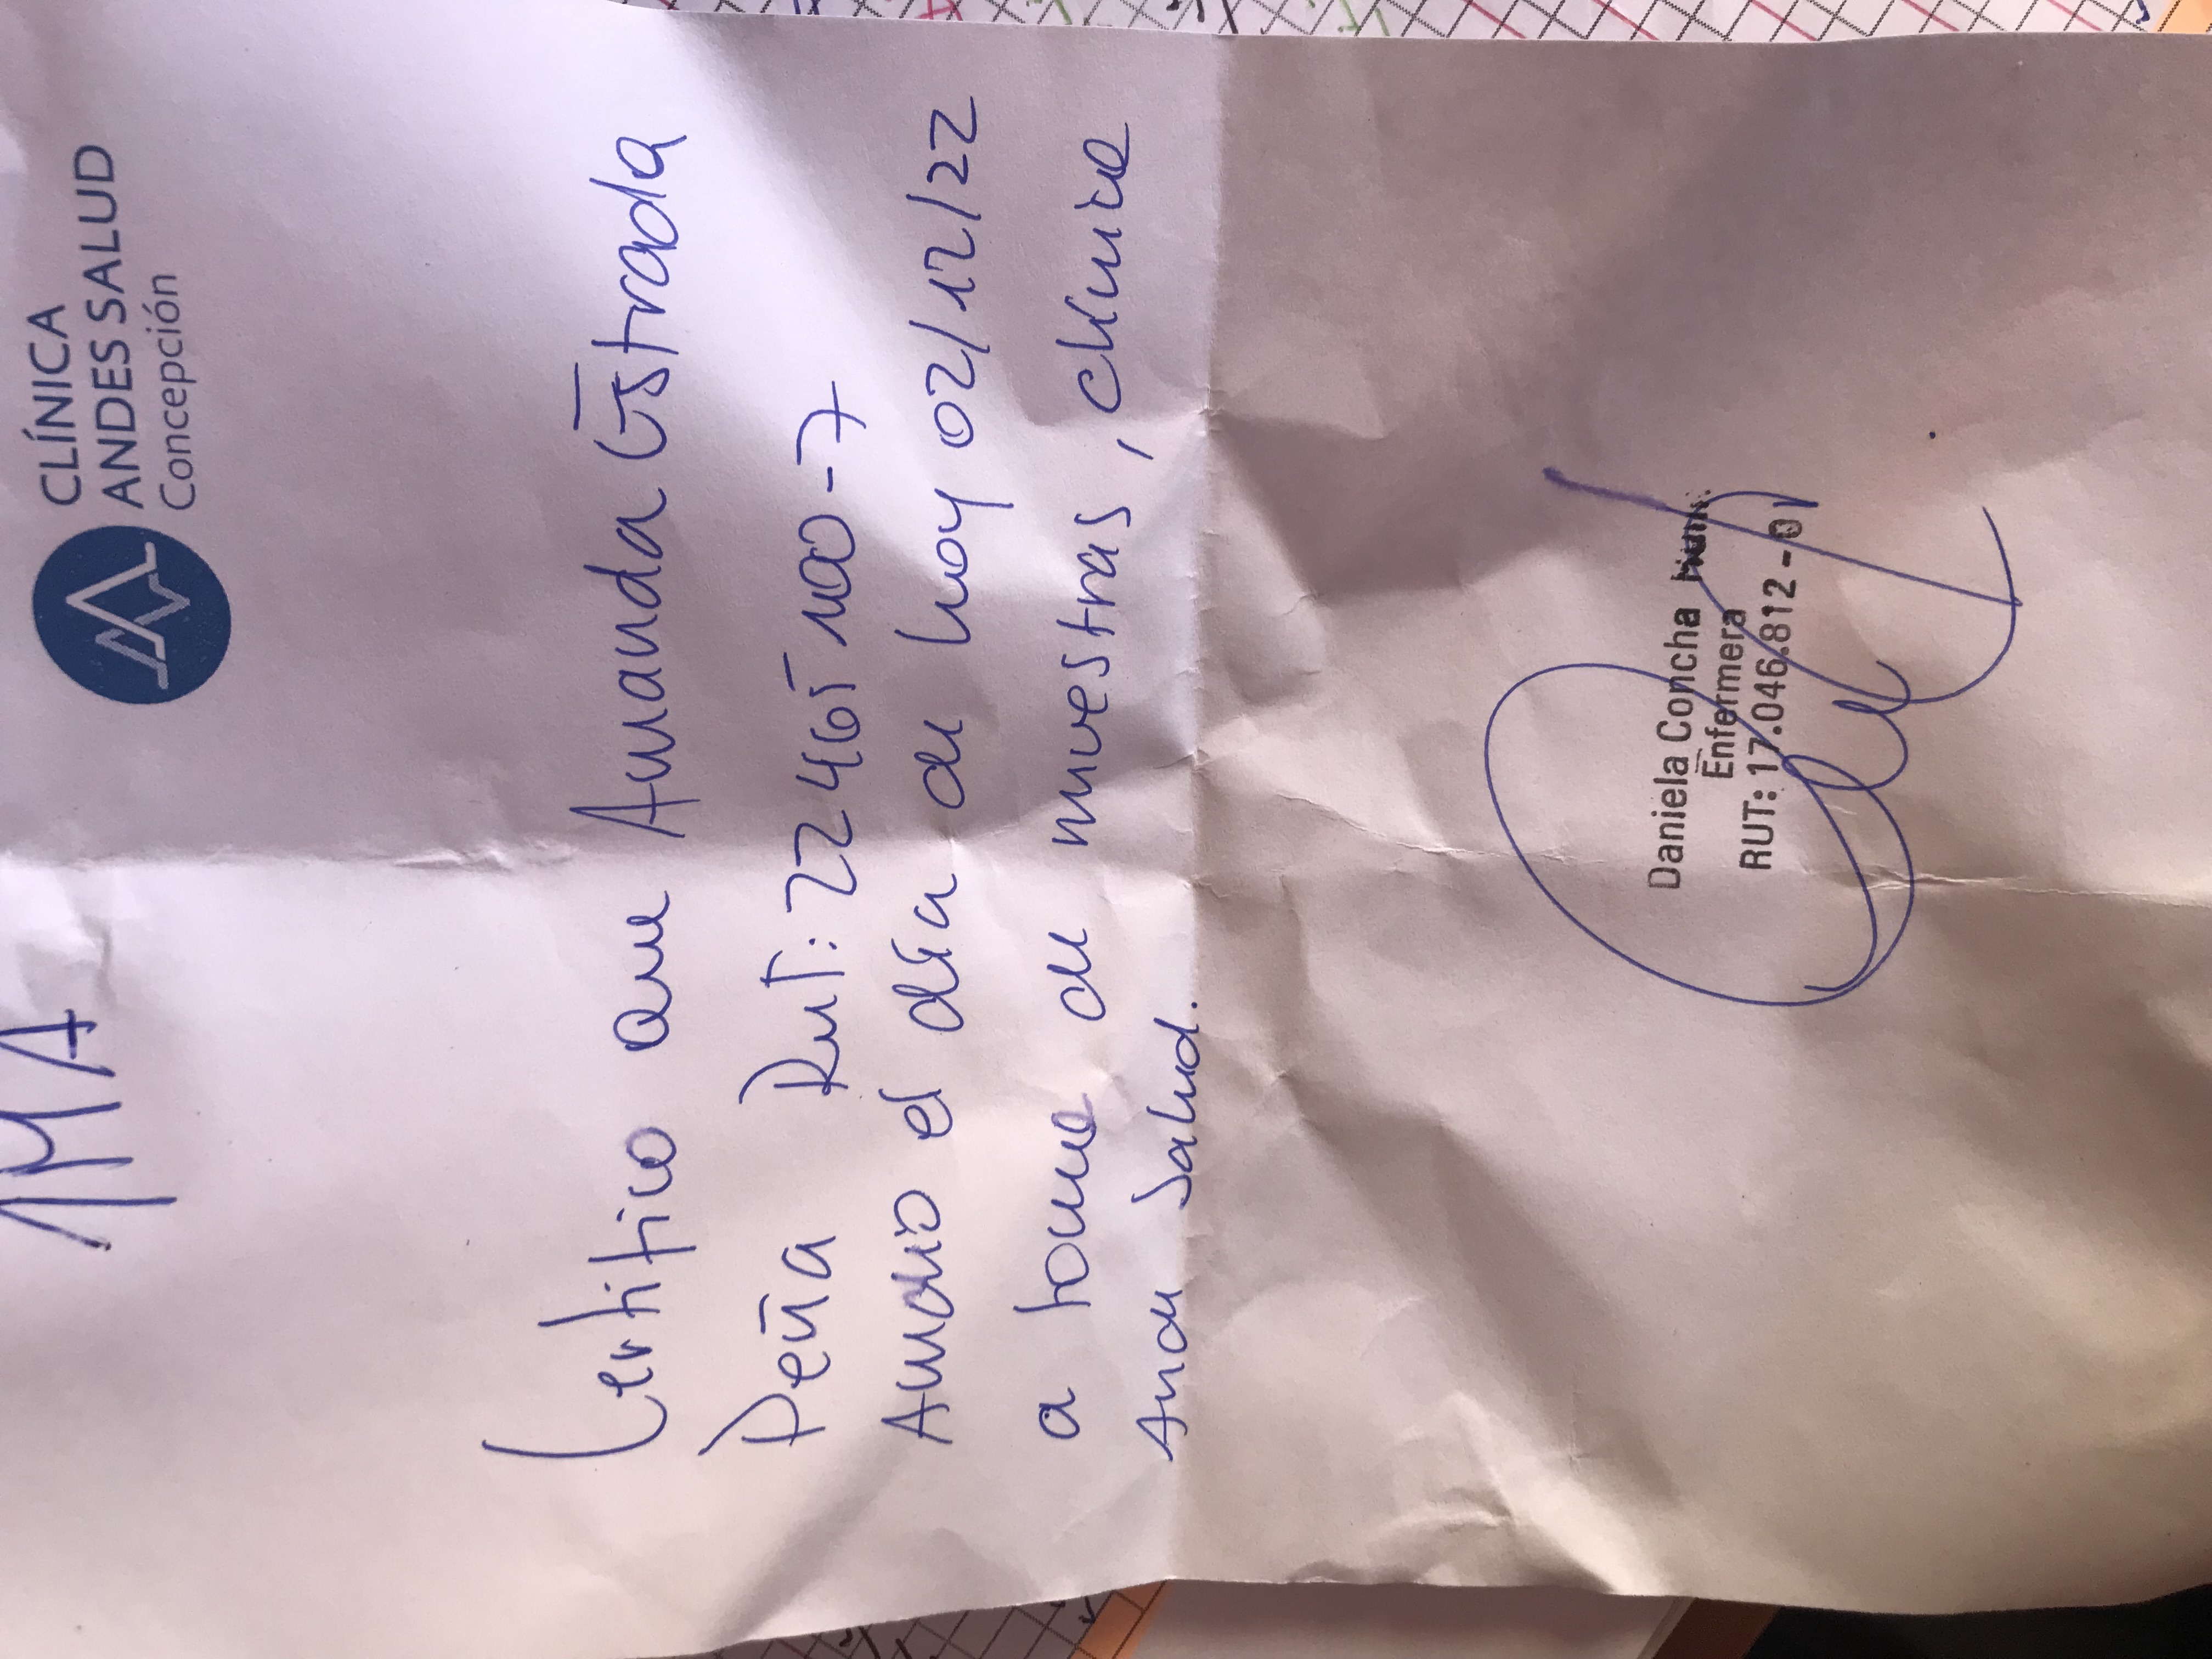 1MA
CLÍNICA
ANDES SALUD
Concepción
Certifico que Amanda Estrada
Peña Rut: 22465100-7
Acudió el día de hoy 02/12/22
a toma de muestras, clínica
Andes Salud.
Daniela Concha
Enfermera
RUT: 17.046.812-0